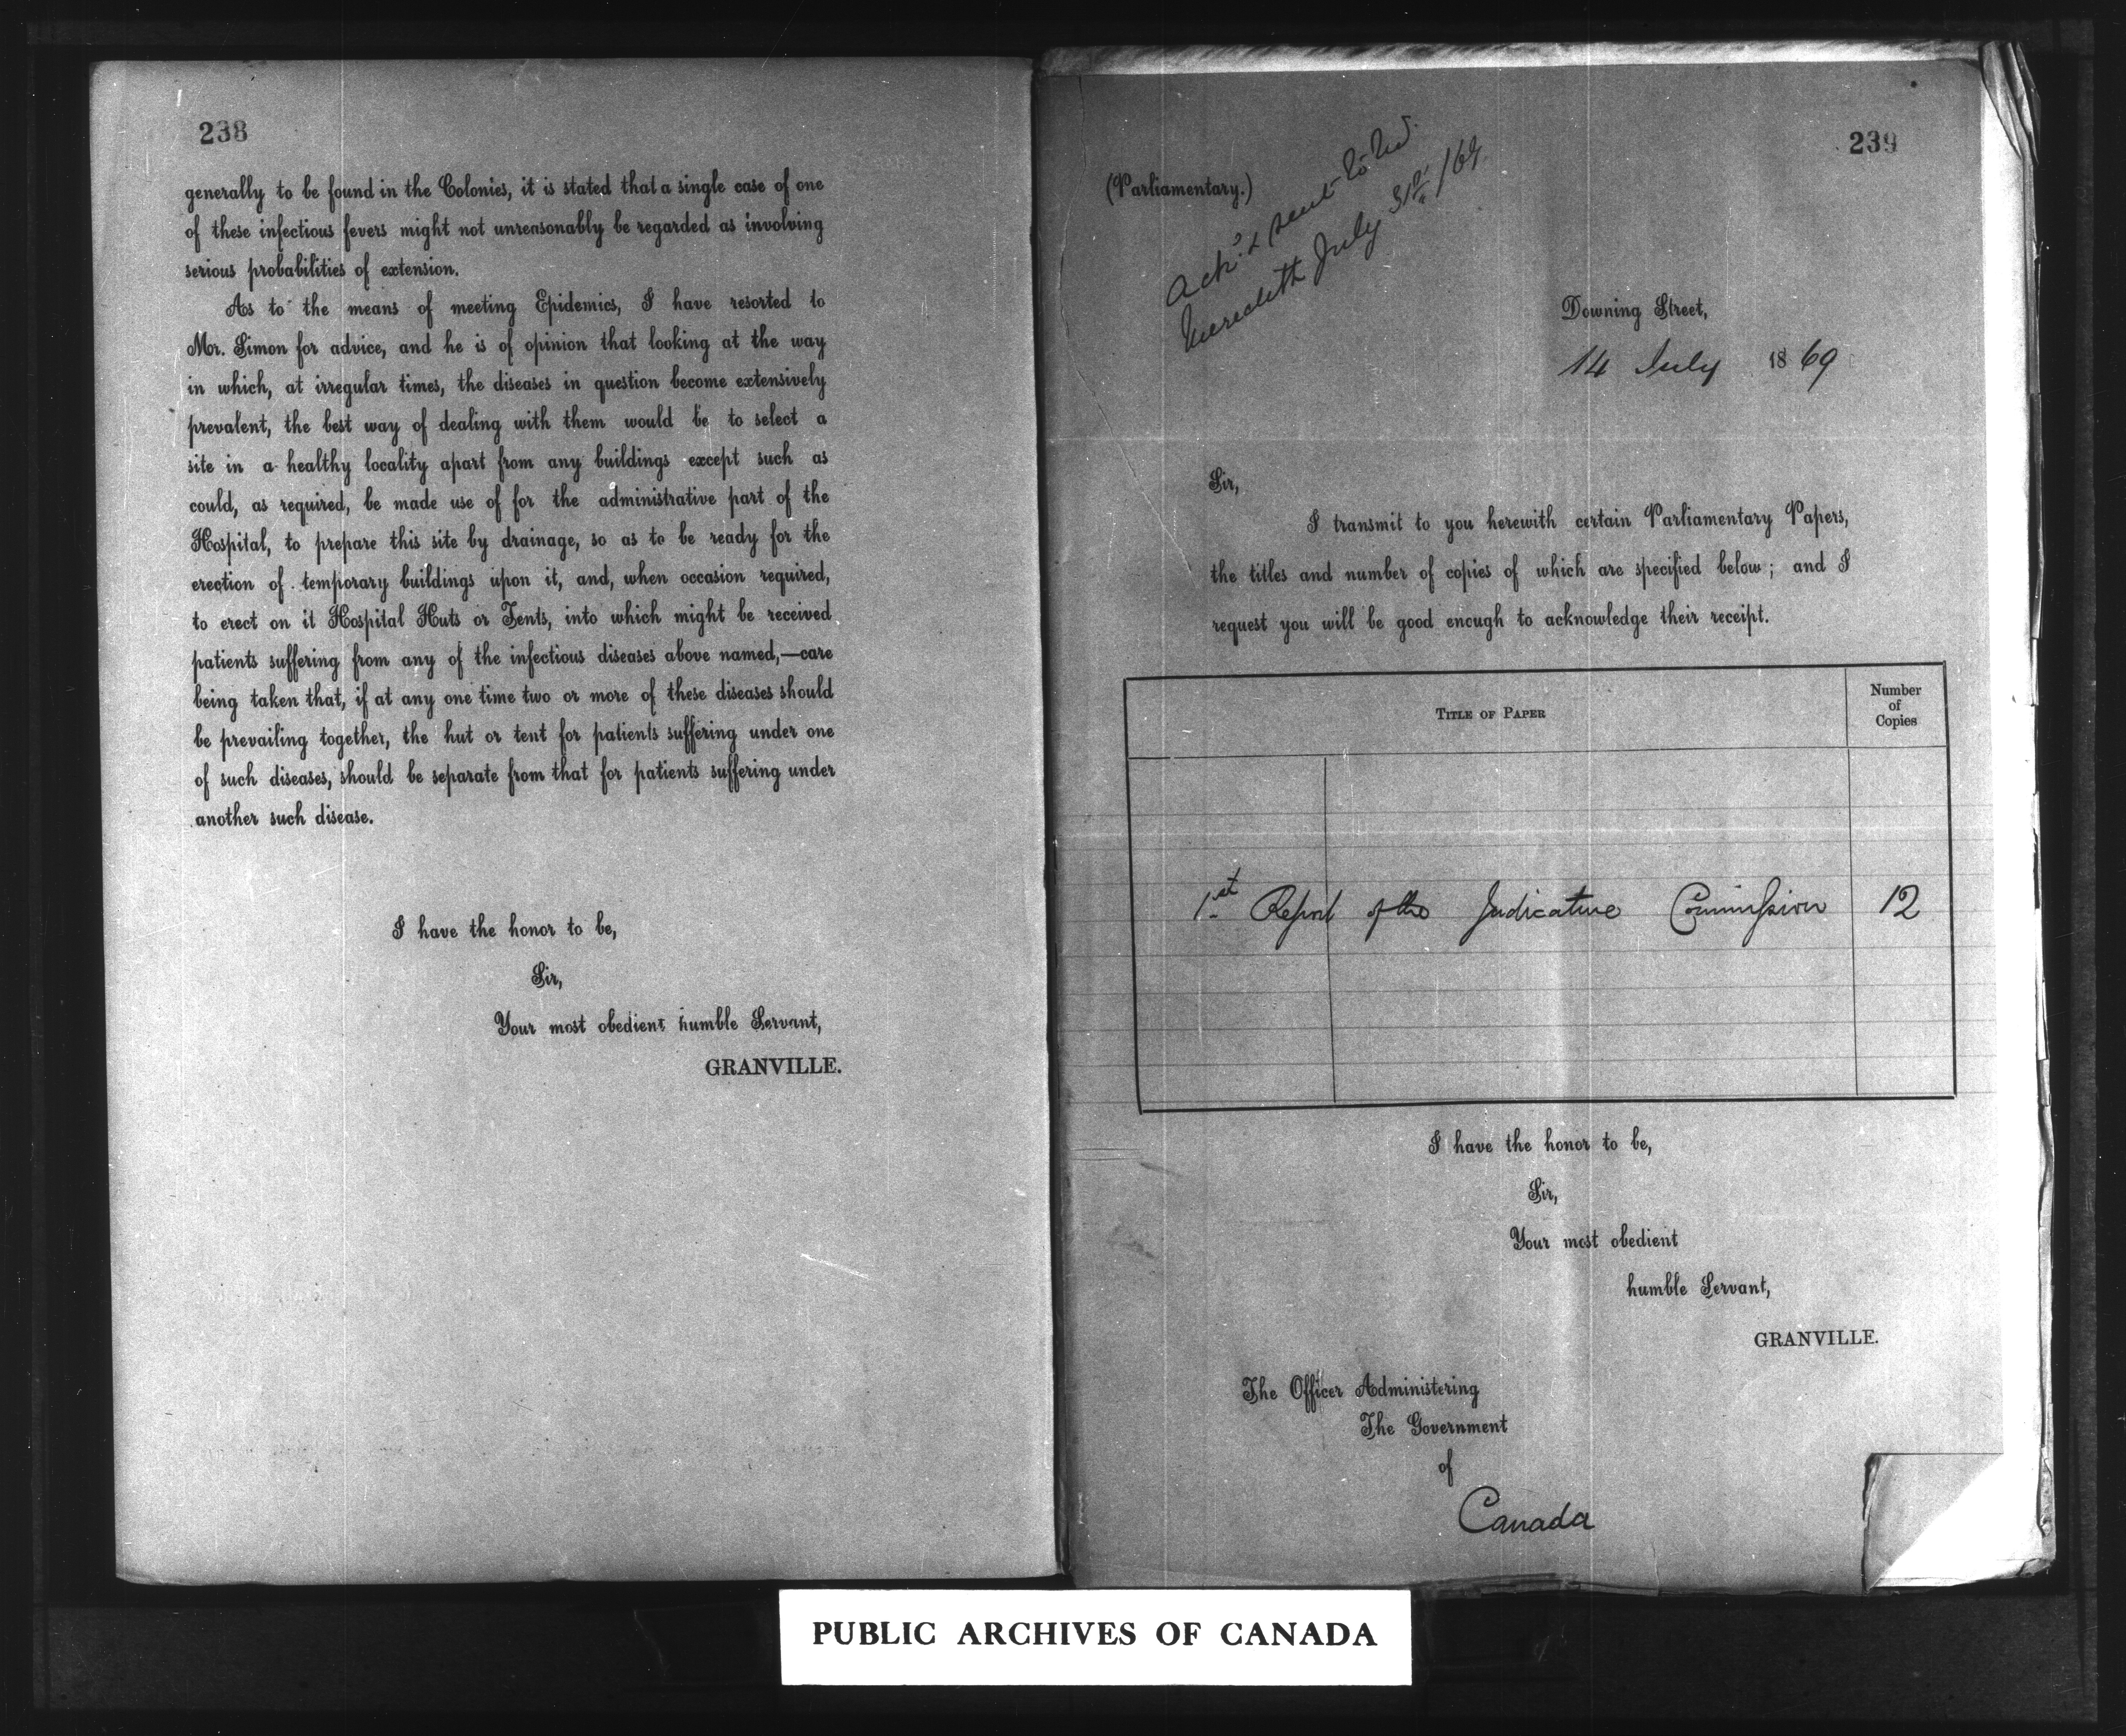 238
generally to be found in the Colonies, it is stated that a single case of one
of these infectious fevers might not unreasonably be regarded as involving
serious probabilities of extension.
As to the means of meeting Epidemics, I have resorted to
Mr. Simon for advice, and he is of opinion that looking at the way
in which, at irregular times, the diseases in question become extensively
prevalent, the best way of dealing with them would be to select a
site in a healthy locality apart from any buildings except such as
could, as required, be made use of for the administrative part of the
Hospital, to prepare this site by drainage, so as to be ready for the
erection of temporary buildings upon it, and, when occasion required,
to erect on it Hospital Huts or Tents, into which might be received
patients suffering from any of the infectious diseases above named,—care
being taken that, if at any one time two or more of these diseases should
be prevailing together, the hut or tent for patients suffering under one
of such diseases, should be separate from that for patients suffering under
another such disease.
I have the honor to be,
Sir,
Your most obedient humble Servant,
GRANVILLE.
239
(Parliamentary.)
Ack'd & sent to
Meredith July 31st /69
Downing Street,
14 July 1869
Sir,
I transmit to you herewith certain Parliamentary Papers,
the titles and number of copies of which are specified below; and I
request you will be good enough to acknowledge their receipt.
TITLE OF PAPER
Number
of
Copies
1st Report of the Judicature Commission 12
I have the honor to be,
Sir,
Your most obedient
humble Servant,
GRANVILLE.
The Officer Administering
The Government
of
Canada
PUBLIC ARCHIVES OF CANADA